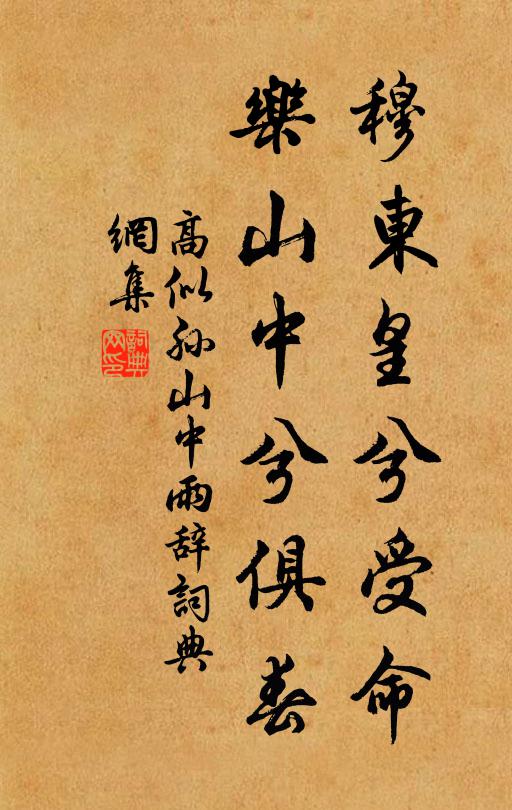 穆東皇兮受命
樂山中兮俱春
高似孫山中雨辞詞典
網集
詞典网印